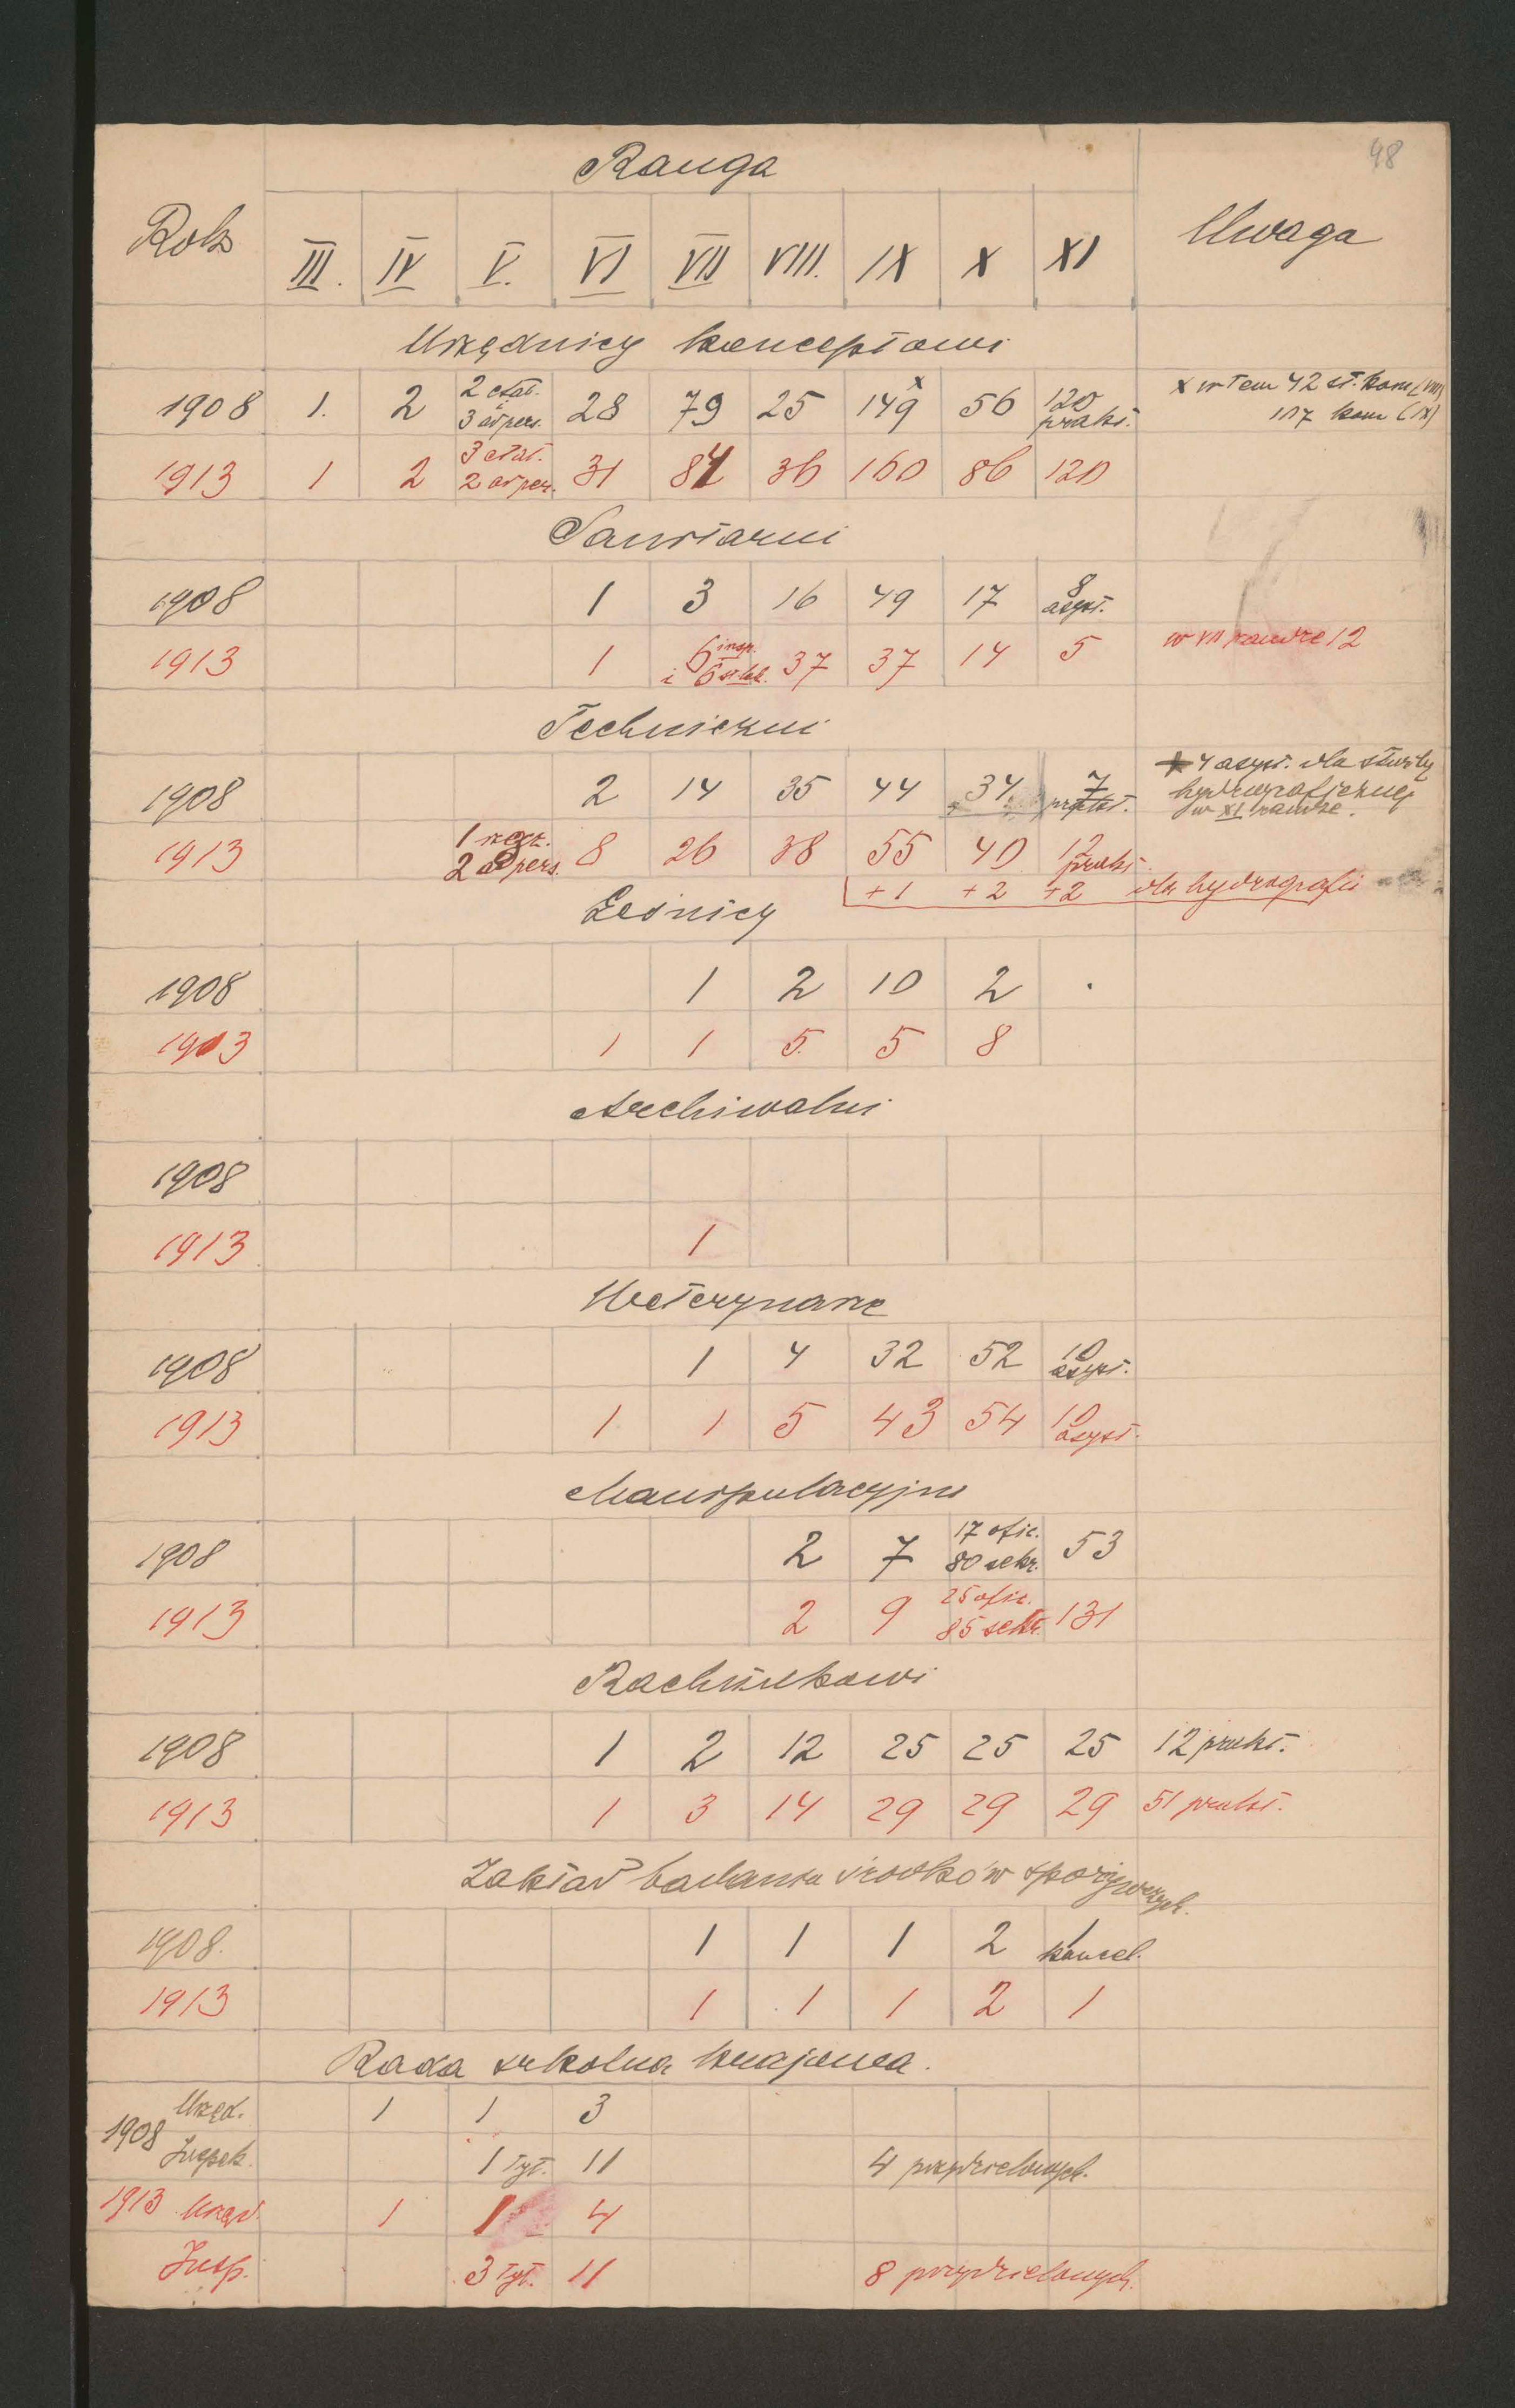 98
Ranga
Rok III. IV V. VI VII VIII. IX X XI Uwaga
Urzędnicy konceptowi
1908 1. 2 2 etat. 3 ad pers. 28 79 25 149 x 56 120 prakt. x w tem 42 st. kom (VIII)
107 kom (IX)
1913 1 2 3 etat. 2 ad per. 31 84 36 160 86 120
Sanitarni
1908 1 3 16 49 17 8 asyst.
1913 1 6 insp. i 6 st. lek. 37 37 14 5 w VII randze 12
Techniczni
1908 2 14 35 44 34 7 prakt. x 4 asyst. dla służby
hydrograficznej
w XI randze.
1913 1 2 ad pers. 8 26 38 55 40 12 prakt.
+1 +2 +2 dla hydrografii
Leśnicy
1908 1 2 10 2 .
1913 1 1 5. 5 8
Archiwalni
1908
1913 1
Weterynarze
1908 1 4 32 52 10 asyst.
1913 1 1 5 43 54 10 asyst.
Manipulacyjni
1908 2 7 17 ofic. 80 sekr. 53
1913 2 9 25 ofic. 85 sekr. 131
Rachunkowi
1908 1 2 12 25 25 25 12 prakt.
1913 1 3 14 29 29 29 51 prakt.
Zakład badania środków spożywczych.
1908. 1 1 1 2 1 kancel.
1913 1 1 1 2 1
Rada szkolna krajowa.
1908 Urzęd. 1 1 3
Inspek. 1 tyt. 11 4 przydzielonych.
1913 Urzęd. 1 1 4
Insp. 3 tyt. 11 8 przydzielonych.